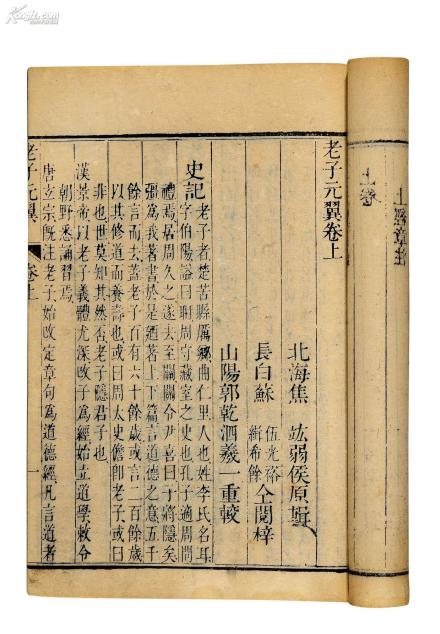 老子元翼卷上
北海焦　竑弱侯原輯
長白蘇　伍光裕
緝希餘　仝閱梓
山陽郭乾泗羲一重較
史記老子者楚苦縣厲鄉曲仁里人也姓李氏名耳
字伯陽謚曰聃周守藏室之史也孔子適周問
禮焉居周久之遂去至關關令尹喜曰子將隱矣
彊為我著書於是廼著上下篇言道德之意五千
餘言而去蓋老子百有六十餘歲或言二百餘歲
以其修道而養壽也或曰周太史儋卽老子或曰
非也世莫知其然否老子隱君子也
漢景帝以老子義體尤深改子為經始立道學敕令
朝野悉諷習焉
唐玄宗旣注老子始改定章句為道德經凡言道者
老子元翼
卷上
一